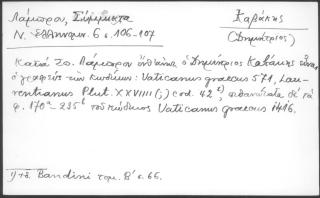 Λάμπρου, Σύμμικτα
Ν. Ἑλληνομ. 6 σ. 106-107
Καβάκης
(Δημήτριος)
Κατὰ Σπ. Λάμπρον ὁ Δημήτριος Καβάκης εἶναι
ὁ γραφεὺς τῶν κωδίκων: Vaticanus graecus 571, Lau-
rentianus Plut. XXVIIII (;) cod. 42 1), πιθανώτατα δὲ τὰ
φ. 170α-235β τοῦ κώδικος Vaticanus graecus 1416.
1) Bandini τομ. Β' σ. 66.